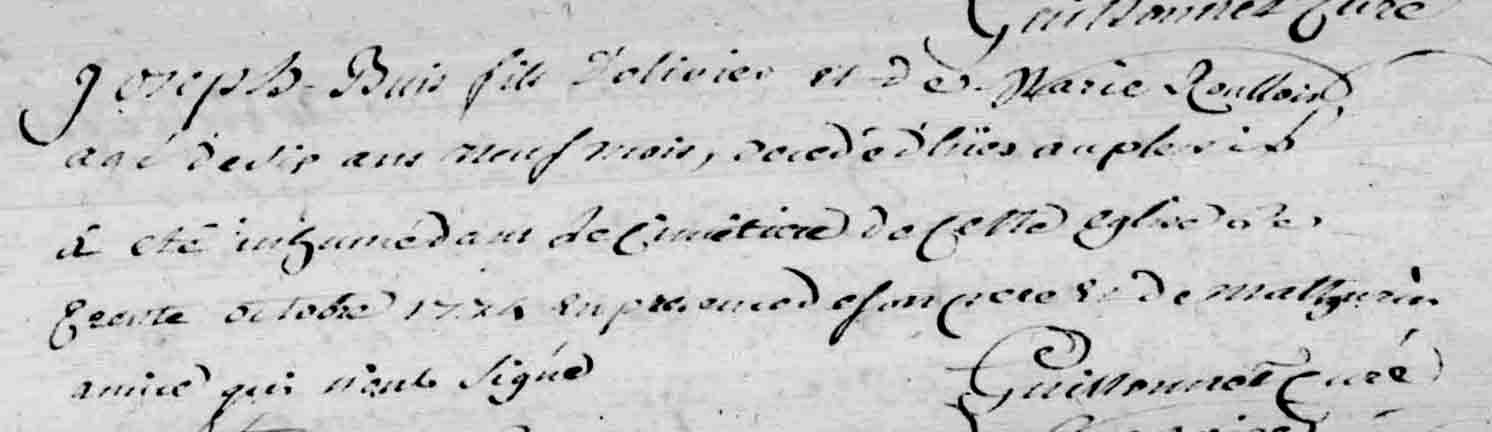 Guillonnet curé
Joseph Buis fils d'olivier et de Marie Roullois
agé de six ans neuf mois, decedé d'hier au plessix
a eté inhumé dans le cimétiere de cette eglise ce
trente octobre 1774 en presence de son pere et de mathurin
amice qui n'ont signé
Guillonnet curé